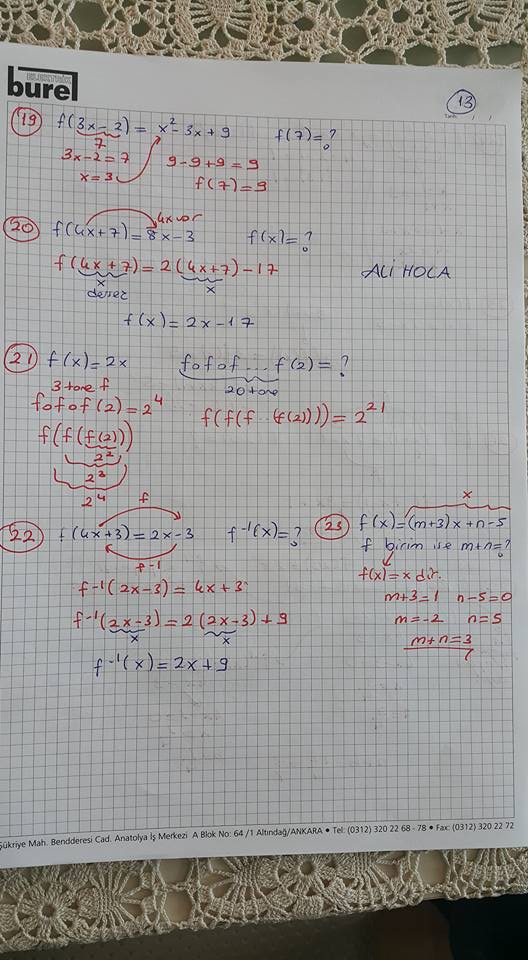 ELEKTRİK
burel
13
Tarih: / /
19) f(3x-2) = x²-3x+9 f(7)=?
7
3x-2=7 9-9+9=9
x=3 f(7)=9
4x var
20) f(4x+7)=8x-3 f(x)=?
f(4x+7)=2(4x+7)-17 ALİ HOLA
x x
dersez
f(x)=2x-17
21) f(x)=2x fofof...f(2)=?
3 tane f 20 tane
fofof(2)=2⁴ f(f(f...(f(2))))=2²¹
f(f(f(2)))
2²
2³
2⁴
f
22) f(4x+3)=2x-3 f⁻¹(x)=?
f⁻¹
f⁻¹(2x-3)=4x+3
f⁻¹(2x-3)=2(2x-3)+9
x x
f⁻¹(x)=2x+9
x
23) f(x)=(m+3)x+n-5
f birim ise m+n=?
f(x)=x dir.
m+3=1 n-5=0
m=-2 n=5
m+n=3
Şükriye Mah. Bendderesi Cad. Anatolya İş Merkezi A Blok No: 64 /1 Altındağ/ANKARA • Tel: (0312) 320 22 68 - 78 • Fax: (0312) 320 22 72